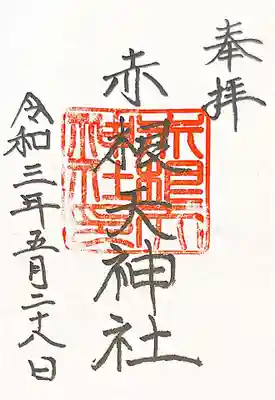 奉拝
赤根天神社
令和三年五月二十八日